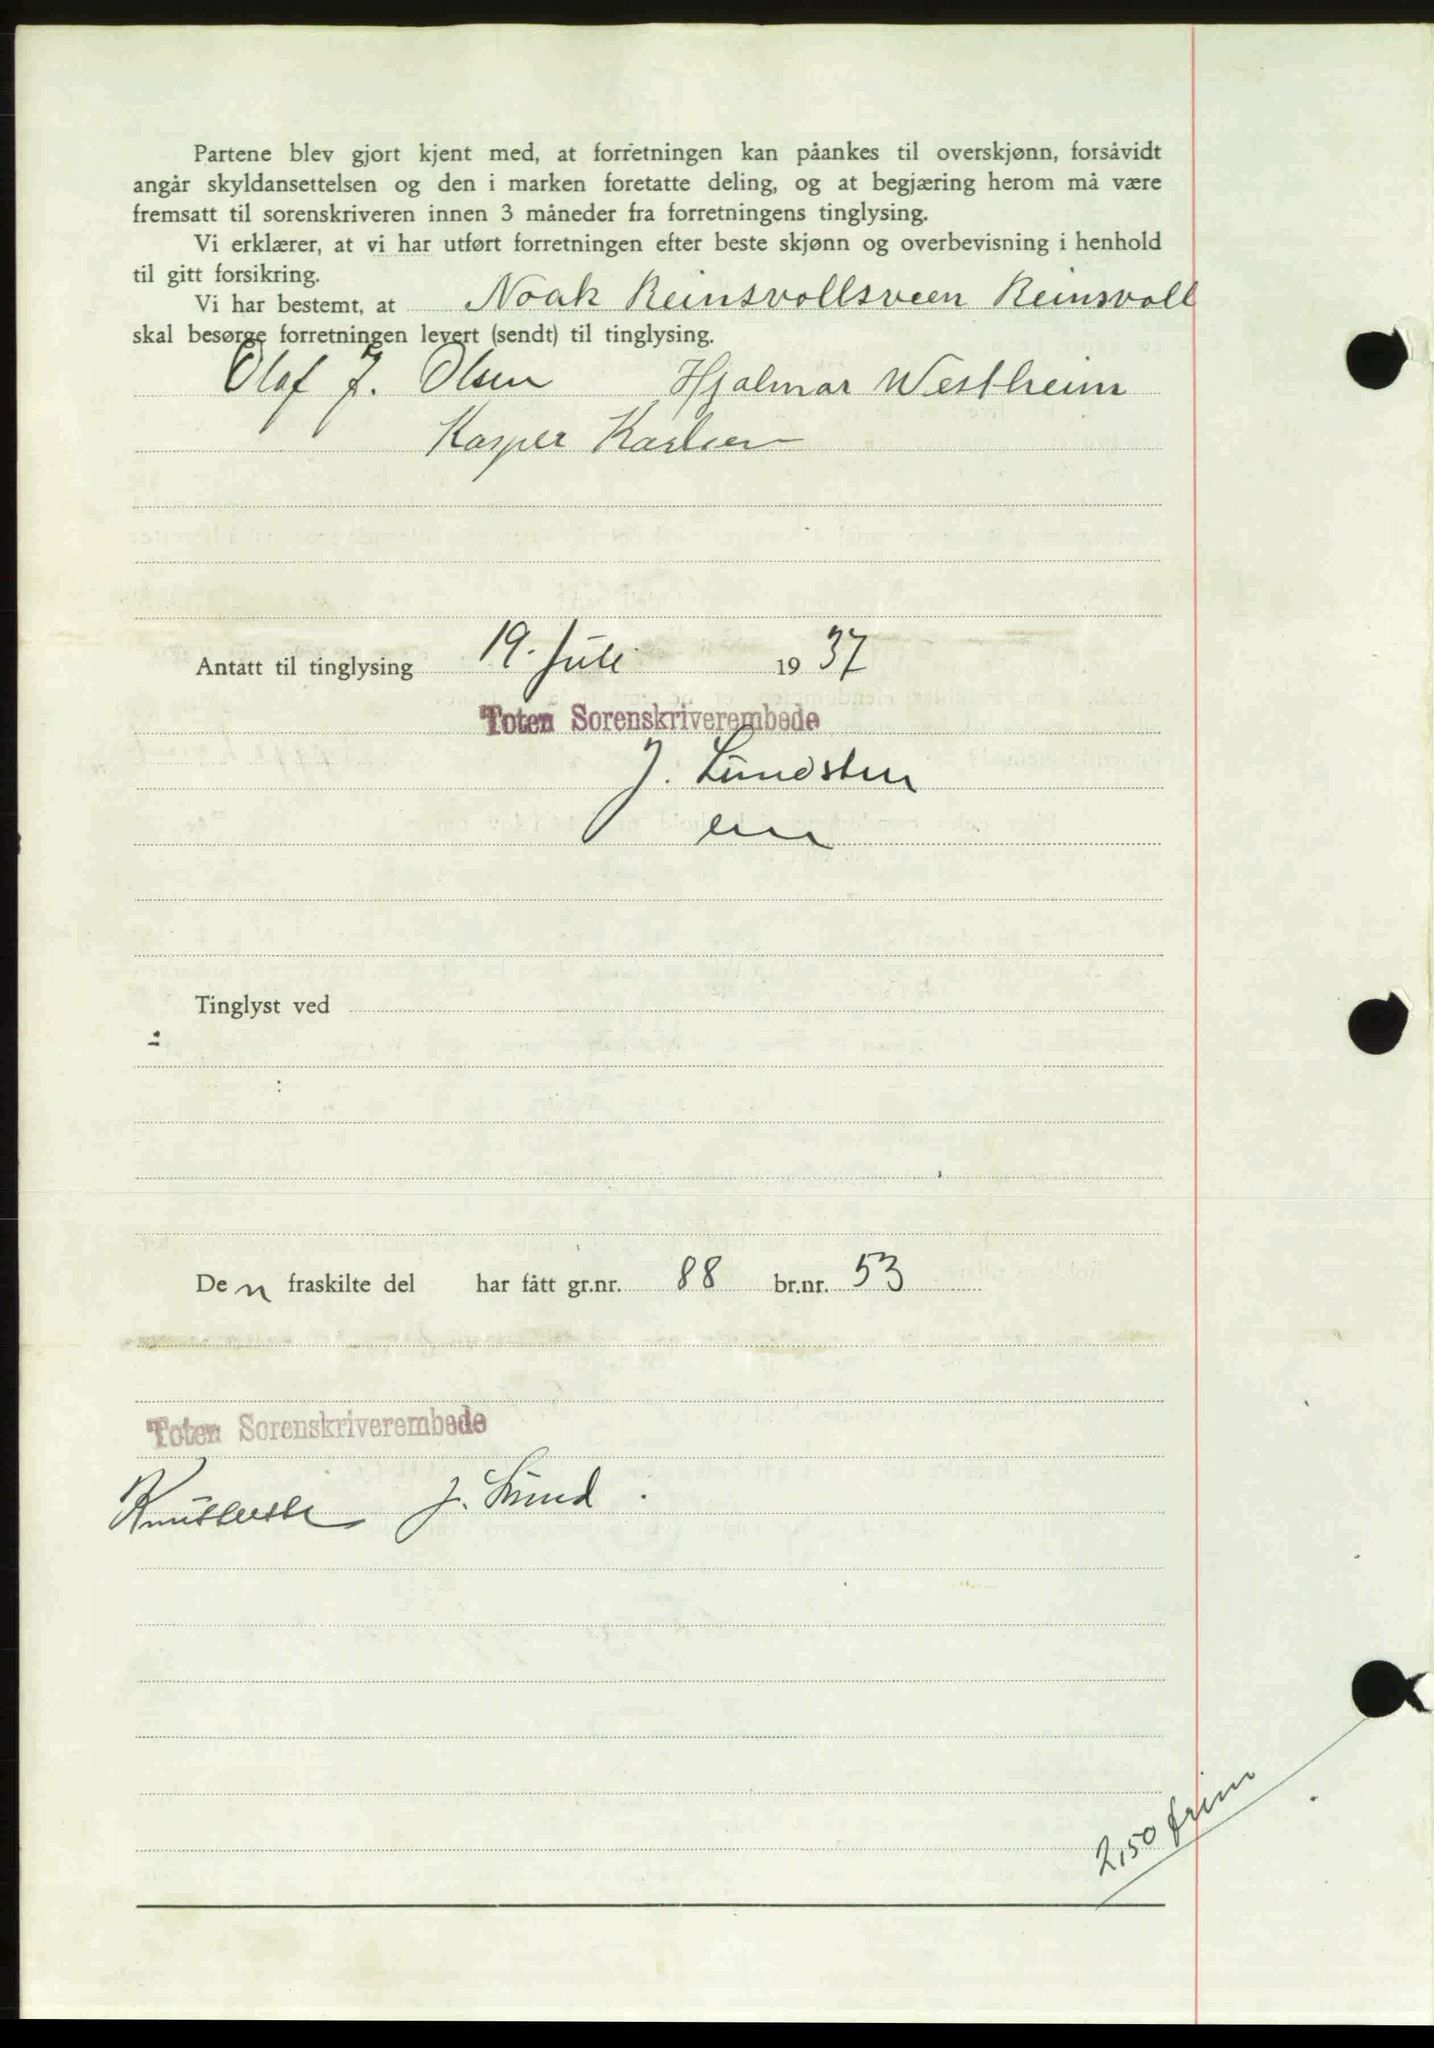 Partene blev gjort kjent med, at forretningen kan påankes til overskjønn, forsåvidt
angår skyldansettelsen og den i marken foretatte deling, og at begjæring herom må være
fremsatt til sorenskriveren innen 3 måneder fra forretningens tinglysing.
Vi erklærer, at vi har utført forretningen efter beste skjønn og overbevisning i henhold
til gitt forsikring.
Vi har bestemt, at Noak Reinsvollsveen Reinsvoll
skal besørge forretningen levert (sendt) til tinglysing.
Olaf J. Olsen Hjalmar Westheim
Kasper Karlsen
Antatt til tinglysing 19. Juli 1937
Toten Sorenskriverembede
J. Lundsten
Tinglyst ved
Den fraskilte del har fått gr.nr. 88 br.nr. 53
Toten Sorenskriverembede
J. Lund.
2,50